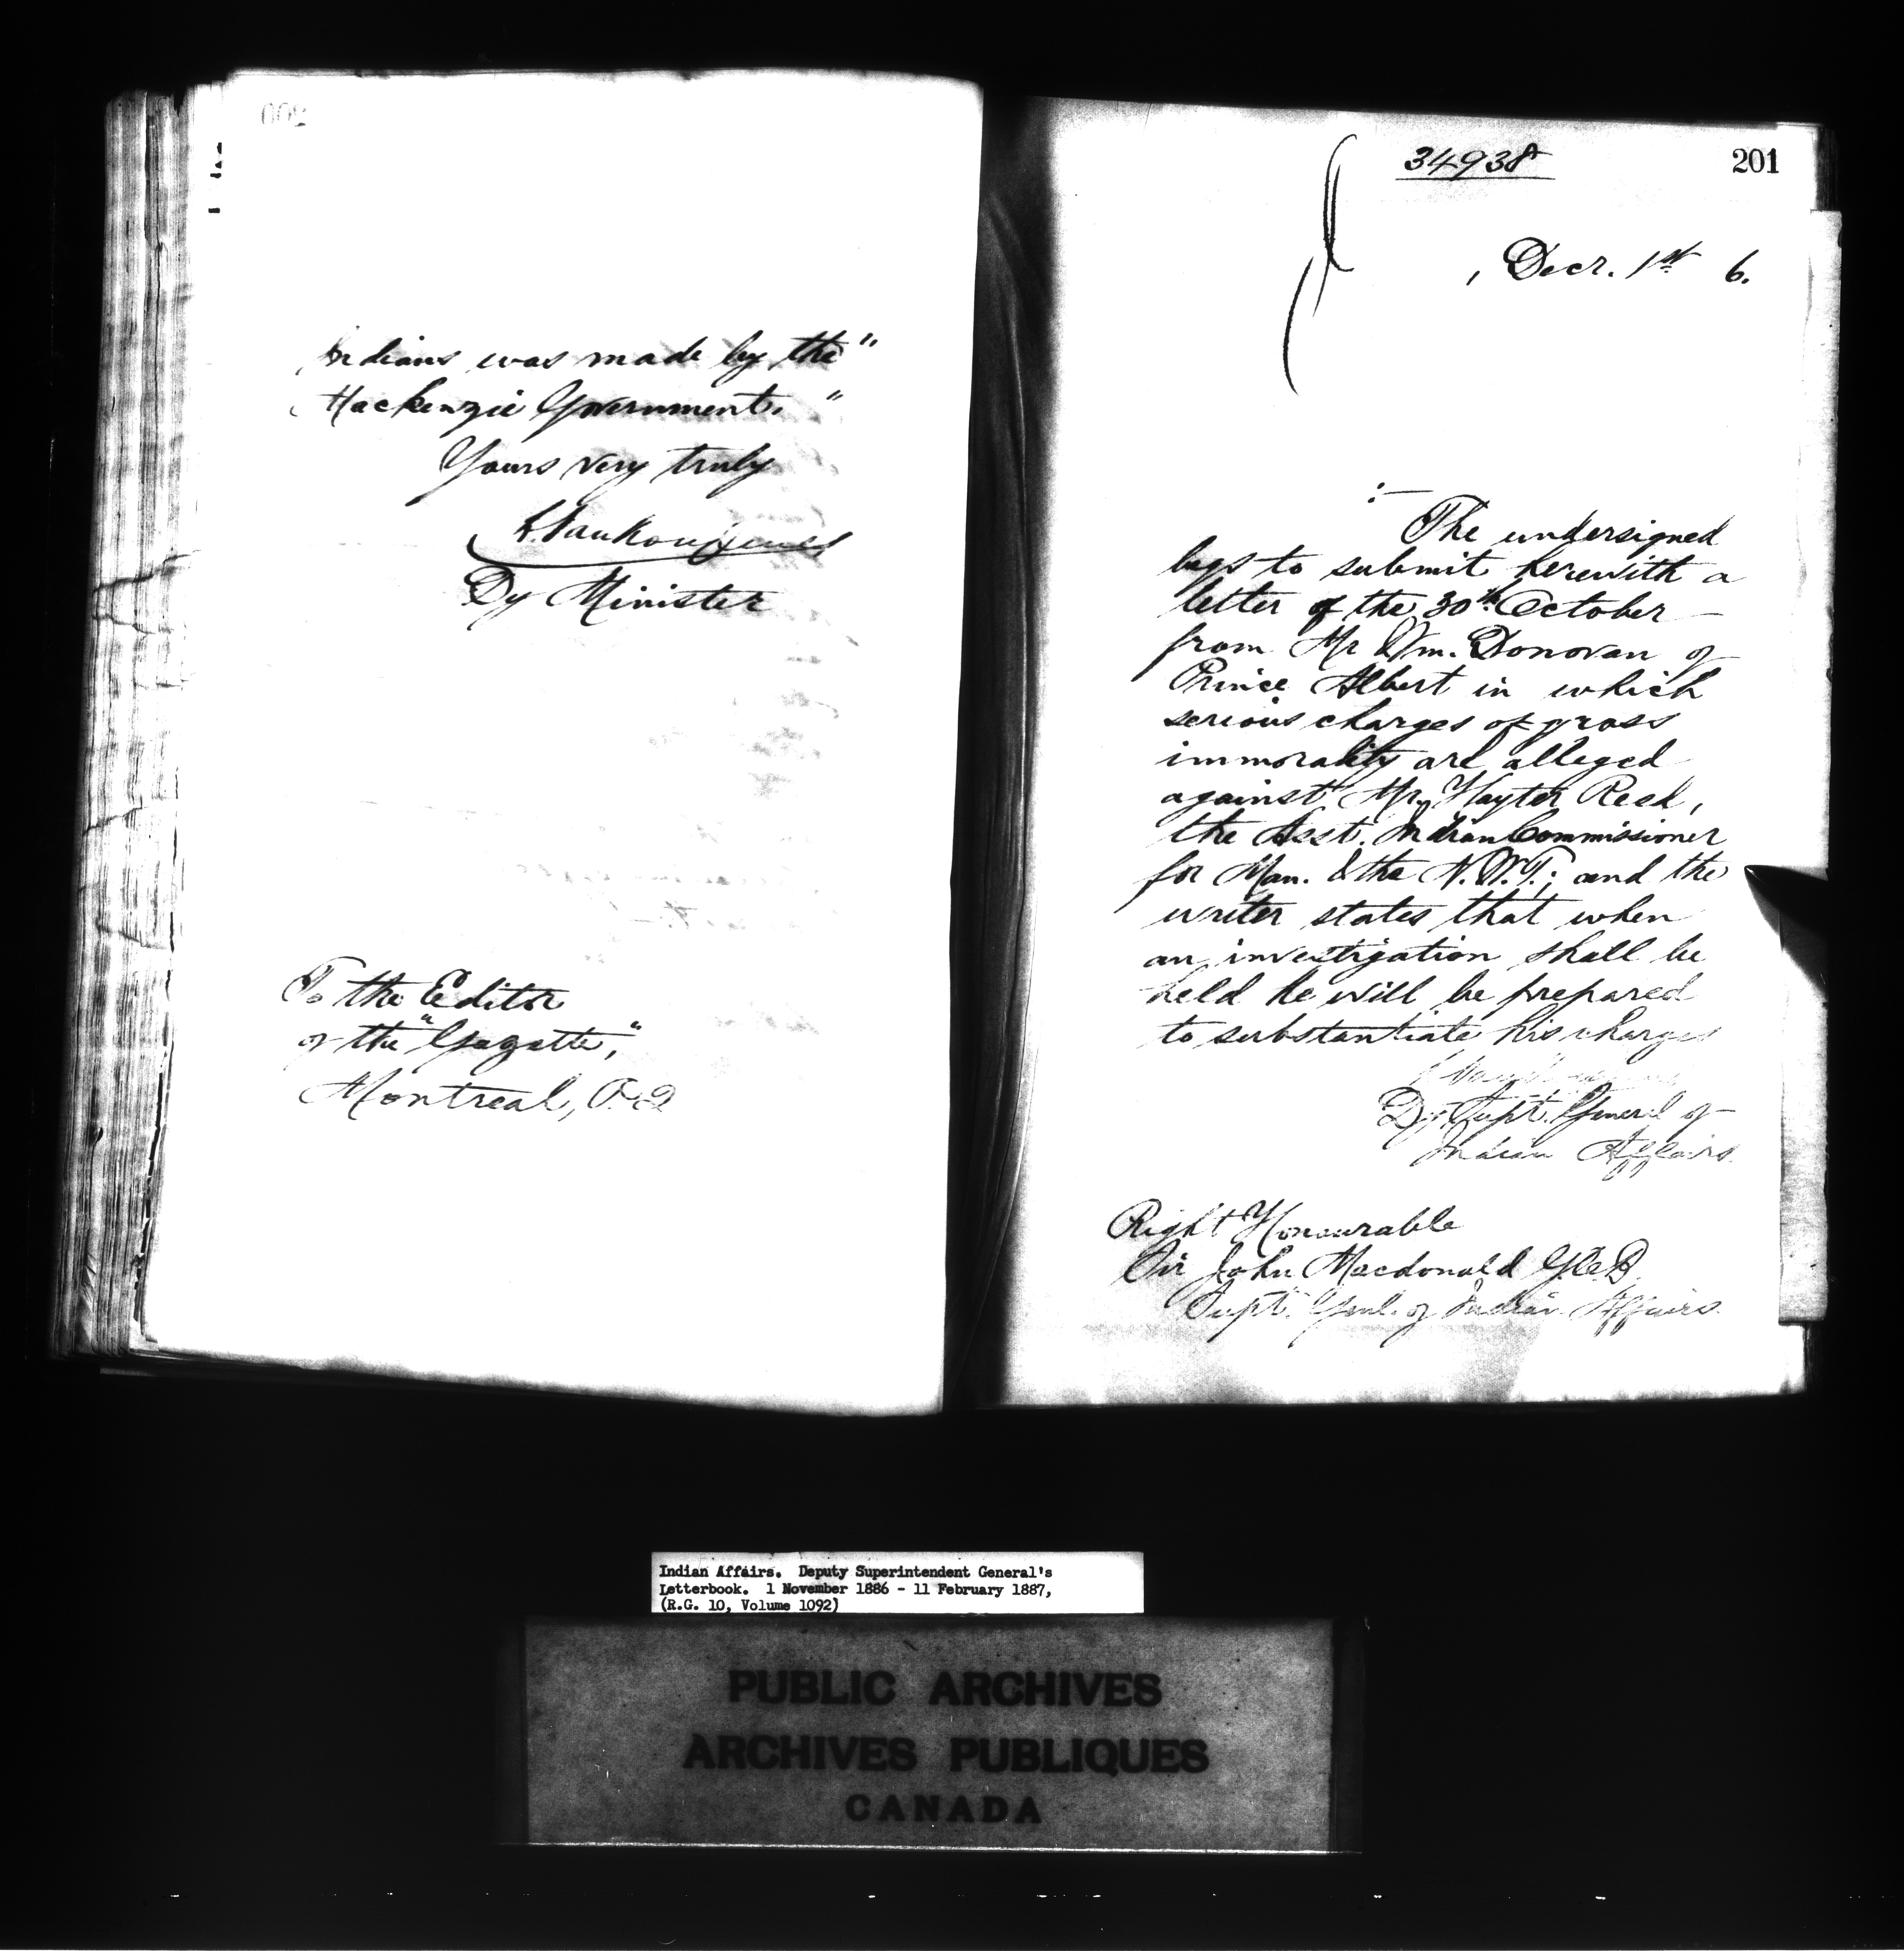 Indians was made by the "
Mackenzie Government. "
Yours very truly
L. Vankoughnet
Dy Minister
To the Editor
of the "Gazette,"
Montreal, P.Q
34938
201
, Decr. 1st 6.
:—
The undersigned
begs to submit herewith a
letter of the 30th October
from Mr Wm. Donovan of
Prince Albert in which
serious charges of gross
immorality are alleged
against Mr. Hayter Reed,
the Asst. Indian Commissioner
for Man. & the N.W.T.; and the
writer states that when
an investigation shall be
held he will be prepared
to substantiate his charges
Dy. Supt. General of
Indian Affairs.
Right Honourable
Sir John Macdonald G.C.B.
Supt. Genl. of Indian Affairs.
Indian Affairs. Deputy Superintendent General's
Letterbook. 1 November 1886 - 11 February 1887,
(R.G. 10, Volume 1092)
PUBLIC ARCHIVES
ARCHIVES PUBLIQUES
CANADA